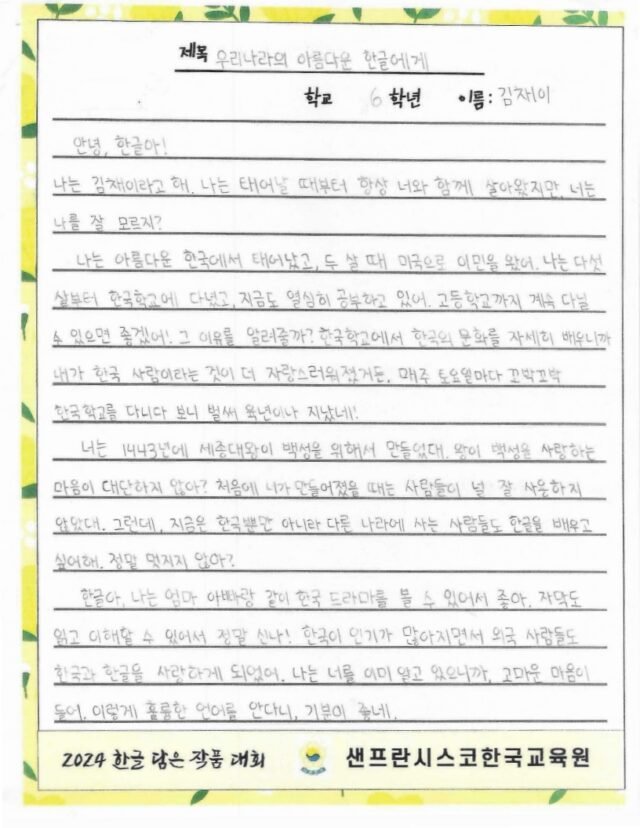 제목 우리나라의 아름다운 한글에게
학교 6 학년 이름: 김채이
안녕, 한글아!
나는 김채이라고 해. 나는 태어날 때부터 항상 너와 함께 살아왔지만, 너는
나를 잘 모르지?
나는 아름다운 한국에서 태어났고, 두 살 때 미국으로 이민을 왔어. 나는 다섯
살부터 한국학교에 다녔고, 지금도 열심히 공부하고 있어. 고등학교까지 계속 다닐
수 있으면 좋겠어! 그 이유를 알려줄까? 한국학교에서 한국의 문화를 자세히 배우니까
내가 한국 사람이라는 것이 더 자랑스러워졌거든. 매주 토요일마다 꼬박꼬박
한국학교를 다니다 보니 벌써 육년이나 지났네!
너는 1443년에 세종대왕이 백성을 위해서 만들었대. 왕이 백성을 사랑하는
마음이 대단하지 않아? 처음에 니가 만들어졌을 때는 사람들이 널 잘 사용하지
않았대. 그런데, 지금은 한국뿐만 아니라 다른 나라에 사는 사람들도 한글을 배우고
싶어해. 정말 멋지지 않아?
한글아, 나는 엄마 아빠랑 같이 한국 드라마를 볼 수 있어서 좋아. 자막도
읽고 이해할 수 있어서 정말 신나! 한국이 인기가 많아지면서 외국 사람들도
한국과 한글을 사랑하게 되었어. 나는 너를 이미 알고 있으니까, 고마운 마음이
들어. 이렇게 훌륭한 언어를 안다니, 기분이 좋네.
2024 한글 담은 작품 대회 샌프란시스코한국교육원